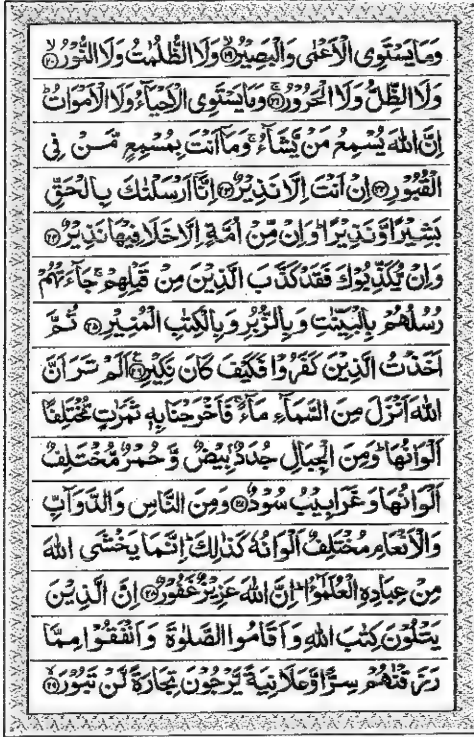 وَمَا يَسْتَوِى الْاَعْمٰى وَالْبَصِيْرُ ۙ۱۹ وَلَا الظُّلُمٰتُ وَلَا النُّوْرُ ۙ۲۰
وَلَا الظِّلُّ وَلَا الْحَرُوْرُ ۚ۲۱ وَمَا يَسْتَوِى الْاَحْيَآءُ وَلَا الْاَمْوَاتُ ؕ
اِنَّ اللّٰهَ يُسْمِعُ مَنْ يَّشَآءُ ۚ وَمَاۤ اَنْتَ بِمُسْمِعٍ مَّنْ فِى
الْقُبُوْرِ ۲۲ اِنْ اَنْتَ اِلَّا نَذِيْرٌ ۲۳ اِنَّاۤ اَرْسَلْنٰكَ بِالْحَقِّ
بَشِيْرًا وَّنَذِيْرًا ؕ وَاِنْ مِّنْ اُمَّةٍ اِلَّا خَلَا فِيْهَا نَذِيْرٌ ۲۴
وَاِنْ يُّكَذِّبُوْكَ فَقَدْ كَذَّبَ الَّذِيْنَ مِنْ قَبْلِهِمْ ۚ جَآءَتْهُمْ
رُسُلُهُمْ بِالْبَيِّنٰتِ وَبِالزُّبُرِ وَبِالْكِتٰبِ الْمُنِيْرِ ۲۵ ثُمَّ
اَخَذْتُ الَّذِيْنَ كَفَرُوْا فَكَيْفَ كَانَ نَكِيْرِ ۲۶ اَلَمْ تَرَ اَنَّ
اللّٰهَ اَنْزَلَ مِنَ السَّمَآءِ مَآءً ۚ فَاَخْرَجْنَا بِهٖ ثَمَرٰتٍ مُّخْتَلِفًا
اَلْوَانُهَا ؕ وَمِنَ الْجِبَالِ جُدَدٌۢ بِيْضٌ وَّحُمْرٌ مُّخْتَلِفٌ
اَلْوَانُهَا وَغَرَابِيْبُ سُوْدٌ ۲۷ وَمِنَ النَّاسِ وَالدَّوَآبِّ
وَالْاَنْعَامِ مُخْتَلِفٌ اَلْوَانُهٗ كَذٰلِكَ ؕ اِنَّمَا يَخْشَى اللّٰهَ
مِنْ عِبَادِهِ الْعُلَمٰٓؤُا ؕ اِنَّ اللّٰهَ عَزِيْزٌ غَفُوْرٌ ۲۸ اِنَّ الَّذِيْنَ
يَتْلُوْنَ كِتٰبَ اللّٰهِ وَاَقَامُوا الصَّلٰوةَ وَاَنْفَقُوْا مِمَّا
رَزَقْنٰهُمْ سِرًّا وَّعَلَانِيَةً يَّرْجُوْنَ تِجَارَةً لَّنْ تَبُوْرَ ۙ۲۹